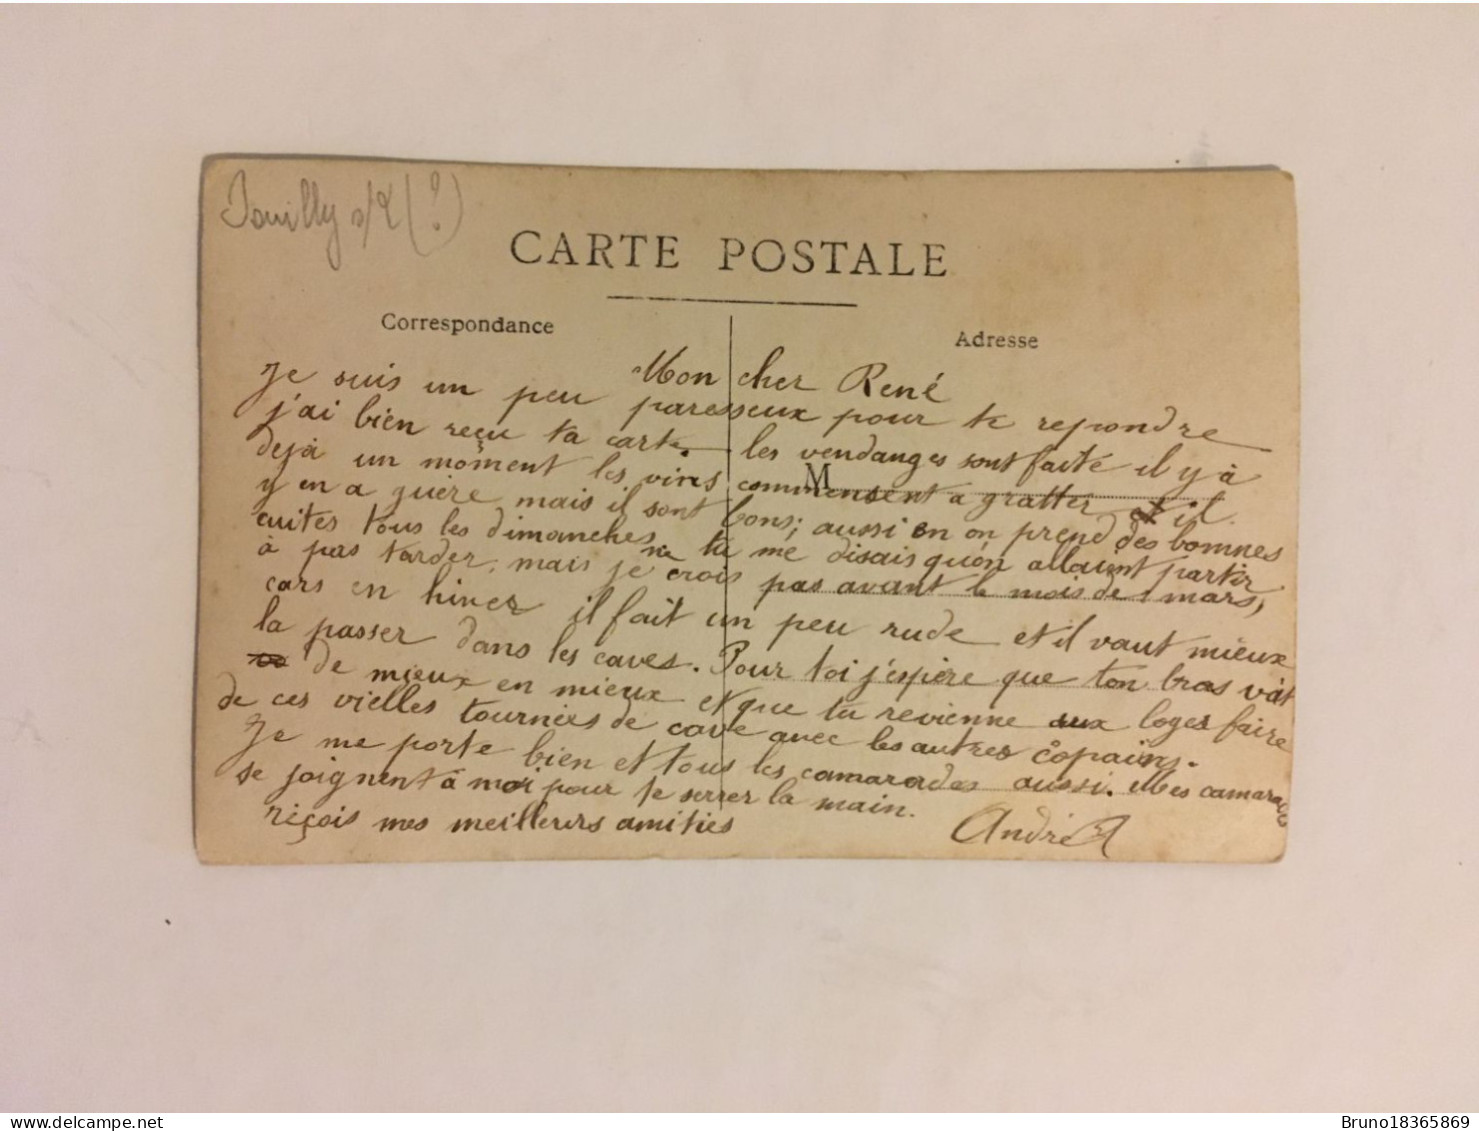 CARTE POSTALE
Correspondance
Adresse
Mon cher René
Je suis un peu paresseux pour te repondre
j'ai bien reçu ta carte. les vendanges sont faite il y à
dejà un moment les vins commensent a gratter et il
M
y en a guère mais il sont bons; aussi on prend des bonnes
cuites tous les dimanches tu me disais qu'on allaient partir
à pas tarder, mais je ne crois pas avant le mois de mars,
cars en hiver il fait un peu rude et il vaut mieux
la passer dans les caves. Pour toi j'espère que ton bras vàt
de mieux en mieux et que tu revienne aux loges faire
de ces vielles tournées de cave avec les autres copains.
Je me porte bien et tous les camarades aussi. Mes camarades
se joignent à moi pour te serrer la main.
reçois mes meilleurs amitiés André
Bruno18365869